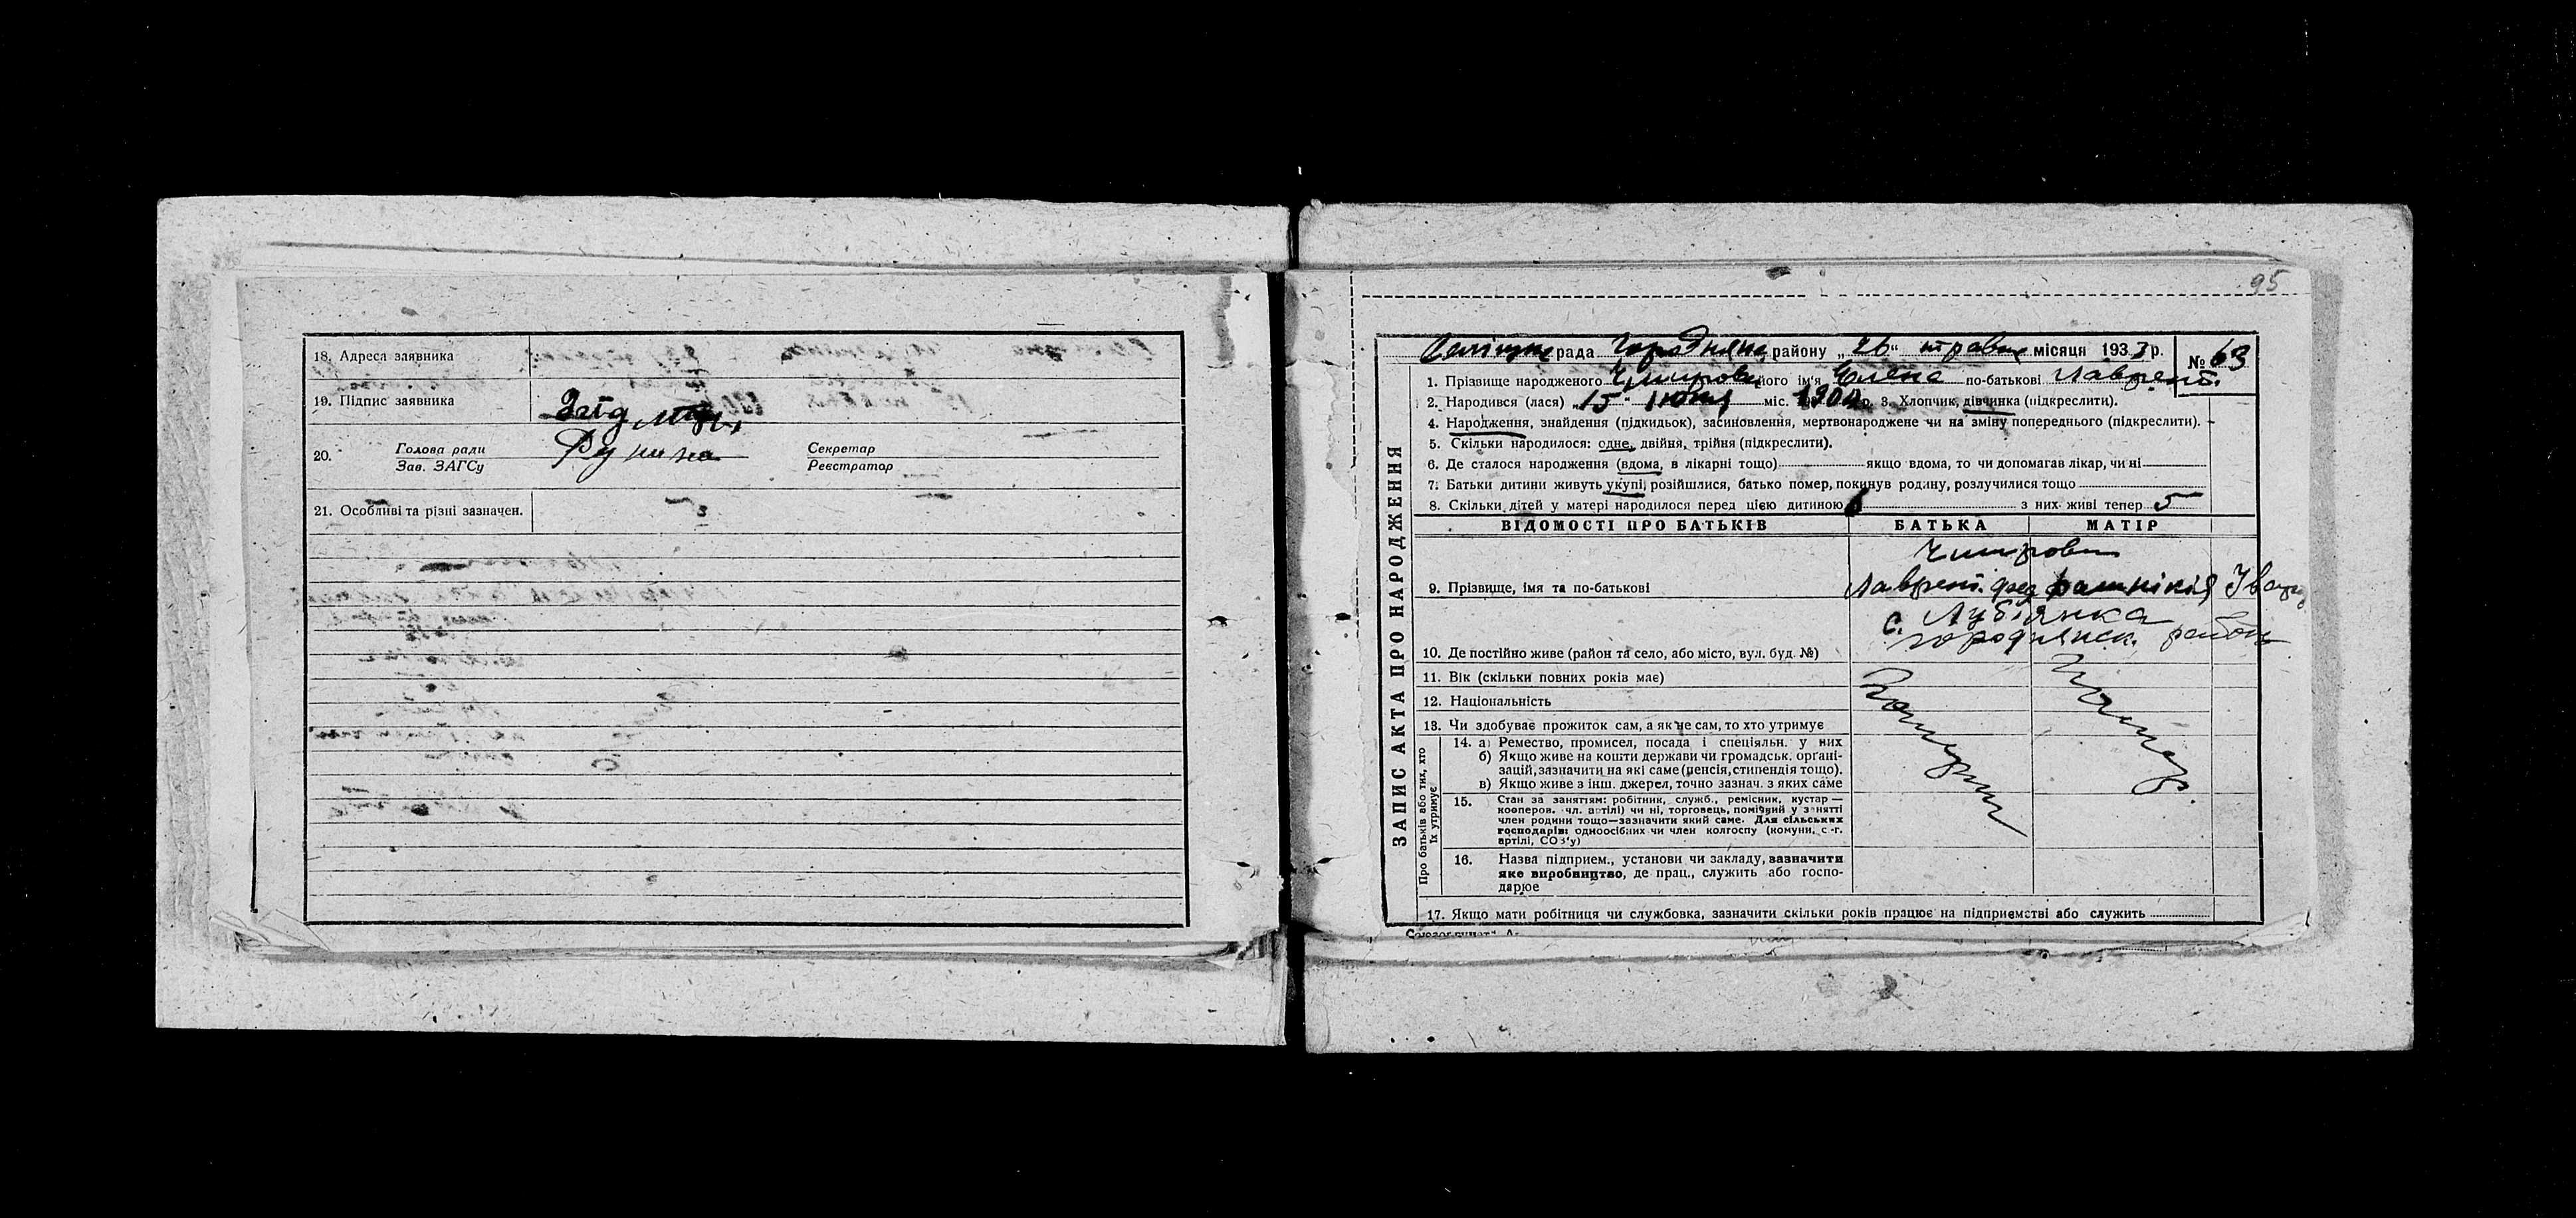 18. Адреса заявника
19. Підпис заявника
20. Голова ради
Зав. ЗАГСу
Секретар
Реєстратор
21. Особливі та різні зазначен.
95
рада району „26“ травня місяця 1933 р. № 63
ЗАПИС АКТА ПРО НАРОДЖЕННЯ
1. Прізвище народженого його ім'я Елена по-батькові Лаврент.
2. Народився (лася) 15 міс. р. 3. Хлопчик, дівчинка (підкреслити).
4. Народження, знайдення (підкидьок), засиновлення, мертвонароджене чи на зміну попереднього (підкреслити).
5. Скільки народилося: одне, двійня, трійня (підкреслити).
6. Де сталося народження (вдома, в лікарні тощо) якщо вдома, то чи допомагав лікар, чи ні
7. Батьки дитини живуть укупі, розійшлися, батько помер, покинув родину, розлучилися тощо
8. Скільки дітей у матері народилося перед цією дитиною 6 з них живі тепер 5
ВІДОМОСТІ ПРО БАТЬКІВ БАТЬКА МАТІР
9. Прізвище, імя та по-батькові
с. Луб'янка
городянск. район
10. Де постійно живе (район та село, або місто, вул. буд. №)
11. Вік (скільки повних років має)
12. Національність
13. Чи здобуває прожиток сам, а як не сам, то хто утримує
Про батьків або тих, хто їх утримує
14. а) Ремество, промисел, посада і спеціяльн. у них
б) Якщо живе на кошти держави чи громадськ. органі-
зацій, зазначити на які саме (пенсія, стипендія тощо).
в) Якщо живе з інш. джерел, точно зазнач. з яких саме
15. Стан за заняттям: робітник, служб., ремісник, кустар —
кооперов. чл. артілі) чи ні, торговець, помічний у занятті
член родини тощо—зазначити який саме. Для сільських
господарів: одноосібних чи член колгоспу (комуни, с.-г.
артілі, СОЗ'у)
16. Назва підприєм., установи чи закладу, зазначити
яке виробництво, де прац., служить або госпо-
дарює
17. Якщо мати робітниця чи службовка, зазначити скільки років працює на підприємстві або служить